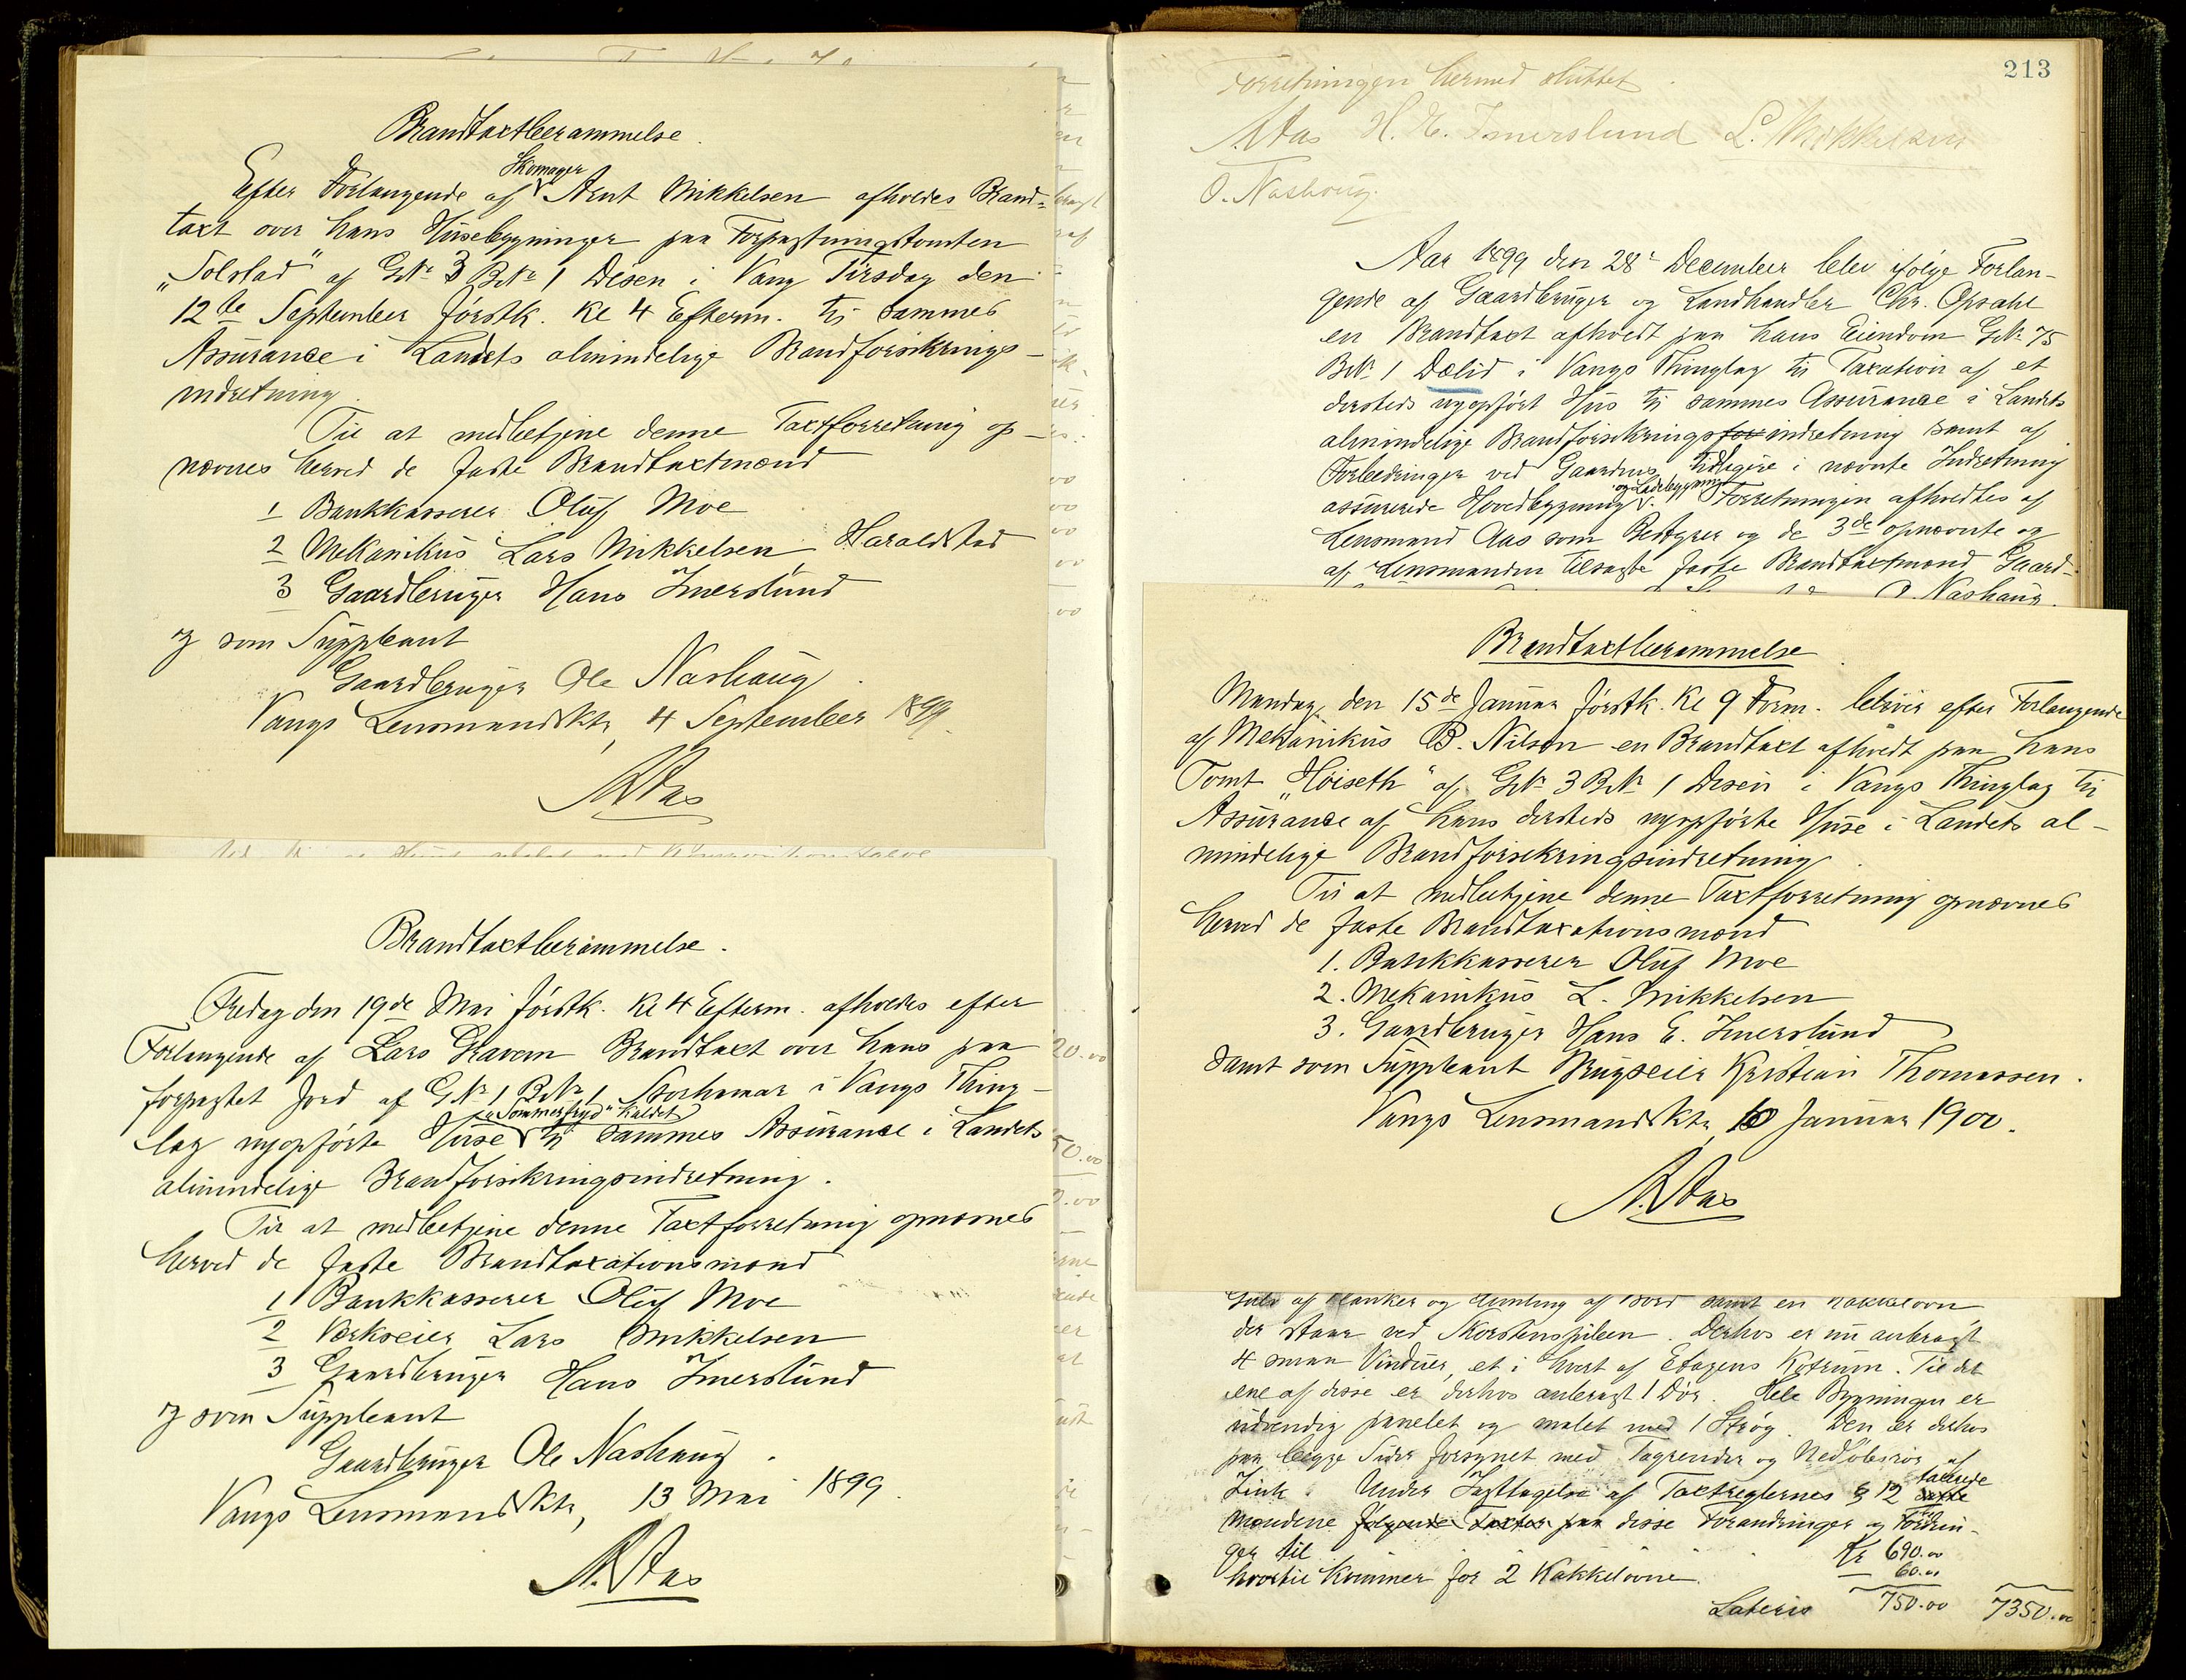 Brandtaxtberammelse.
Efter Forlangende af Skomager Arnt Mikkelsen afholdes Brand-
taxt over hans Husebygninger paa Forpagtningstomten
"Solstad" af GNr 3 BNr 1 Disen i Vang Tirsdag den
12te September førstk. Kl 4 Efterm. til sammes
Assurance i Landets almindelige Brandforsikrings-
indretning.
Til at medbetjene denne Taxtforretning op-
nævnes herved de faste Brandtaxtmænd
1 Bankkasserer Oluf Moe
2 Mekanikus Lars Mikkelsen, Haraldstad
3 Gaardbruger Hans Imerslund
og som Suppleant
Gaardbruger Ole Nashaug.
Vangs Lensmandsktr, 4 September 1899.
A. Aas
Brandtaxtberammelse.
Fredag den 19de Mai førstk. Kl 4 Efterm. afholdes efter
Forlangende af Lars Gravem Brandtaxt over hans paa
forpagtet Jord af GNr 1 BNr 1 Storhamar i Vangs Thing-
lag nyopførte Huse "Sommerfryd" kaldet til sammes Assurance i Landets
almindelige Brandforsikringsindretning.
Til at medbetjene denne Taxtforretning opnævnes
herved de faste Brandtaxationsmænd
1 Bankkasserer Oluf Moe
2 Værkseier Lars Mikkelsen
3 Gaardbruger Hans Imerslund
og som Suppleant
Gaardbruger Ole Nashaug.
Vangs Lensmandsktr, 13 Mai 1899.
A. Aas
213
Forretningen hermed sluttet.
A. Aas H. E. Imerslund L. Mikkelsen
O. Nashoug.
Aar 1899 den 28de December blev ifølge Forlan-
gende af Gaardbruger og Landhandler Chr. Opsahl
en Brandtaxt afholdt paa hans Eiendom GNr 75
BNr 1 Dælid i Vangs Thinglag til Taxation af et
dersteds nyopført Hus til sammes Assurance i Landets
almindelige Brandforsikringsfor indretning samt af
Forbedringer ved Gaardens tidligere i nævnte Indretning
assurerede Hovedbygning og Ladebygning. Forretningen afholdtes af
Lensmand Aas som Bestyrer og de 3de opnævnte og
af Lensmanden tilsagte faste Brandtaxtmænd Gaard-
O. Nashaug.
Brandtaxtberammelse
Mandag den 15de Januar førstk. Kl 9 Form. bliver efter Forlangende
af Mekanikus B. Nilson en Brandtaxt afholdt paa hans
Tomt "Høiseth" af GNr 3 BNr 1 Disen i Vangs Thinglag til
Assurance af hans dersteds nyopførte Huse i Landets al-
mindelige Brandforsikringsindretning.
Til at medbetjene denne Taxtforretning opnævnes
herved de faste Brandtaxationsmænd
1. Bankkasserer Oluf Moe
2. Mekanikus L. Mikkelsen
3. Gaardbruger Hans E. Imerslund
samt som Suppleant Brugseier Kristian Thomassen.
Vangs Lensmandsktr, 10 Januar 1900.
A. Aas
Gulv af Planker og Himling af Bord samt en Kakkelovn
der staar ved Skorstenspiben. Derhos er nu anbragt
4 smaa Vinduer, et i hvert af Etagens Kotrum. Til det
ene af disse er derhos anbragt 1 Dør. Hele Bygningen er
udvendig panelet og malet med 1 Strøg. Den er derhos
paa begge Sider forsynet med Tagrender og Nedløbsrør af
Zink. Under Iagttagelse af Taxtreglernes § 12 taxerede
Mændene følgende Taxter paa disse Forandringer og
ger til Kr 690.00
hvortil kommer for 2 Kakkelovne 60.00
Lateris 750.00 7350.00